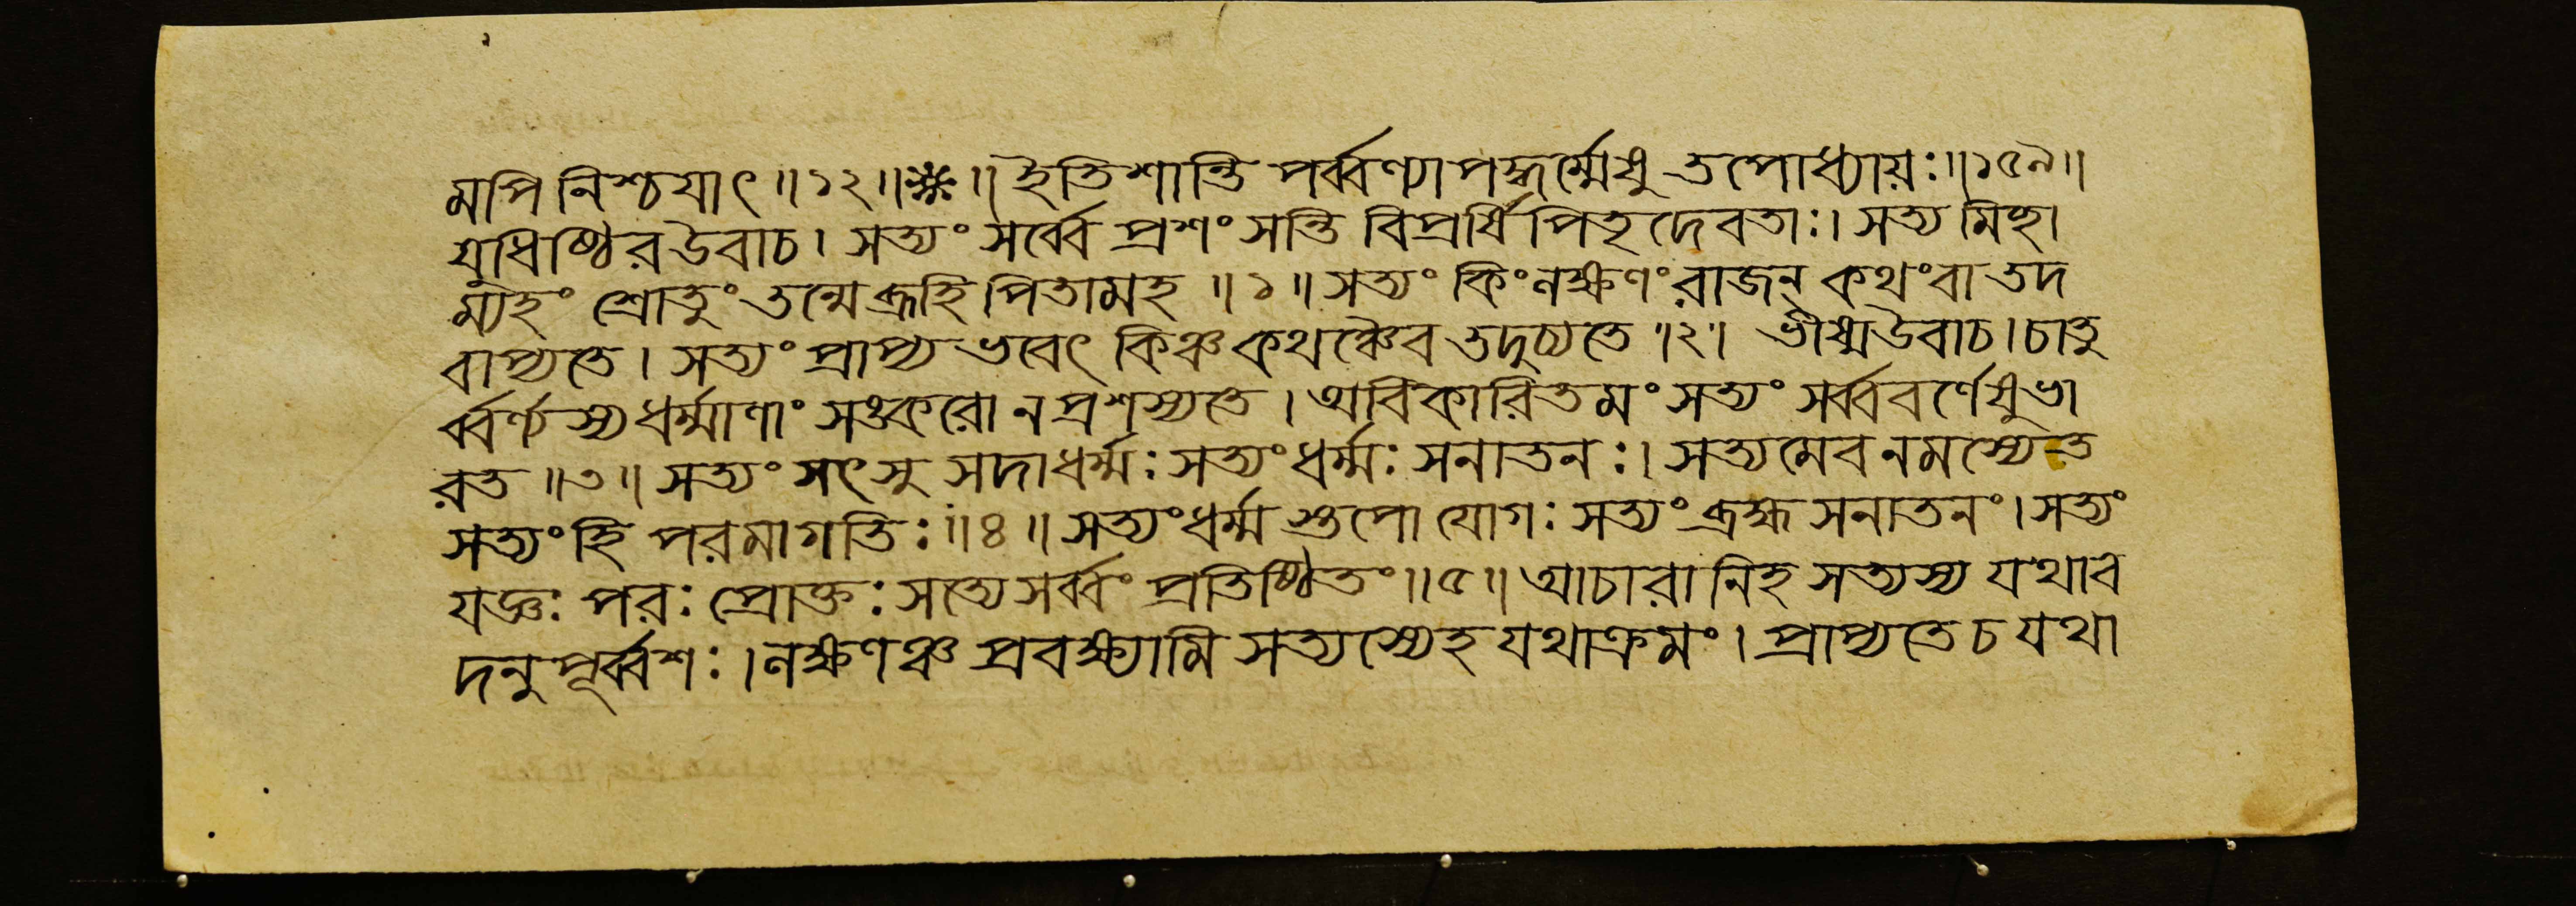 মপি নিশ্চযাৎ ॥ ১২ ॥ * ॥ ইতি শান্তি পর্ব্বণ্যাপদ্ধর্ম্মেষু তপোধ্যায়ঃ ॥ ১৫৯ ॥
যুধিষ্ঠির উবাচ । সত্যং সর্ব্বে প্রশংসন্তি বিপ্রর্ষি পিতৃ দেবতাঃ । সত্য মিহা
ম্যহং শ্রোতুং তন্মে ব্রূহি পিতামহ ॥ ১ ॥ সত্যং কিং লক্ষণং রাজন্ কথং বা তদ
বাপ্যতে । সত্যং প্রাপ্য ভবেৎ কিঞ্চ কথঞ্চৈব তদুচ্যতে ॥ ২ ॥ ভীষ্ম উবাচ । চাতু
র্ব্বর্ণস্য ধর্ম্মাণাং সঙ্করো ন প্রশস্যতে । অবিকারিতমং সত্যং সর্ব্ব বর্ণেষু ভা
রত ॥ ৩ ॥ সত্যং সৎসু সদা ধর্ম্মঃ সত্যং ধর্ম্মঃ সনাতনঃ । সত্যমেব নমস্যেত
সত্যং হি পরমাগতিঃ ॥ ৪ ॥ সত্যং ধর্ম্ম স্তপো যোগঃ সত্যং ব্রহ্ম সনাতনং । সত্যং
যজ্ঞঃ পরঃ প্রোক্তঃ সত্যে সর্ব্বং প্রতিষ্ঠিতং ॥ ৫ ॥ আচারানিহ সত্যস্য যথাব
দনুপূর্ব্বশঃ । লক্ষণঞ্চ প্রবক্ষ্যামি সত্যস্যেহ যথাক্রমং । প্রাপ্যতে চ যথা